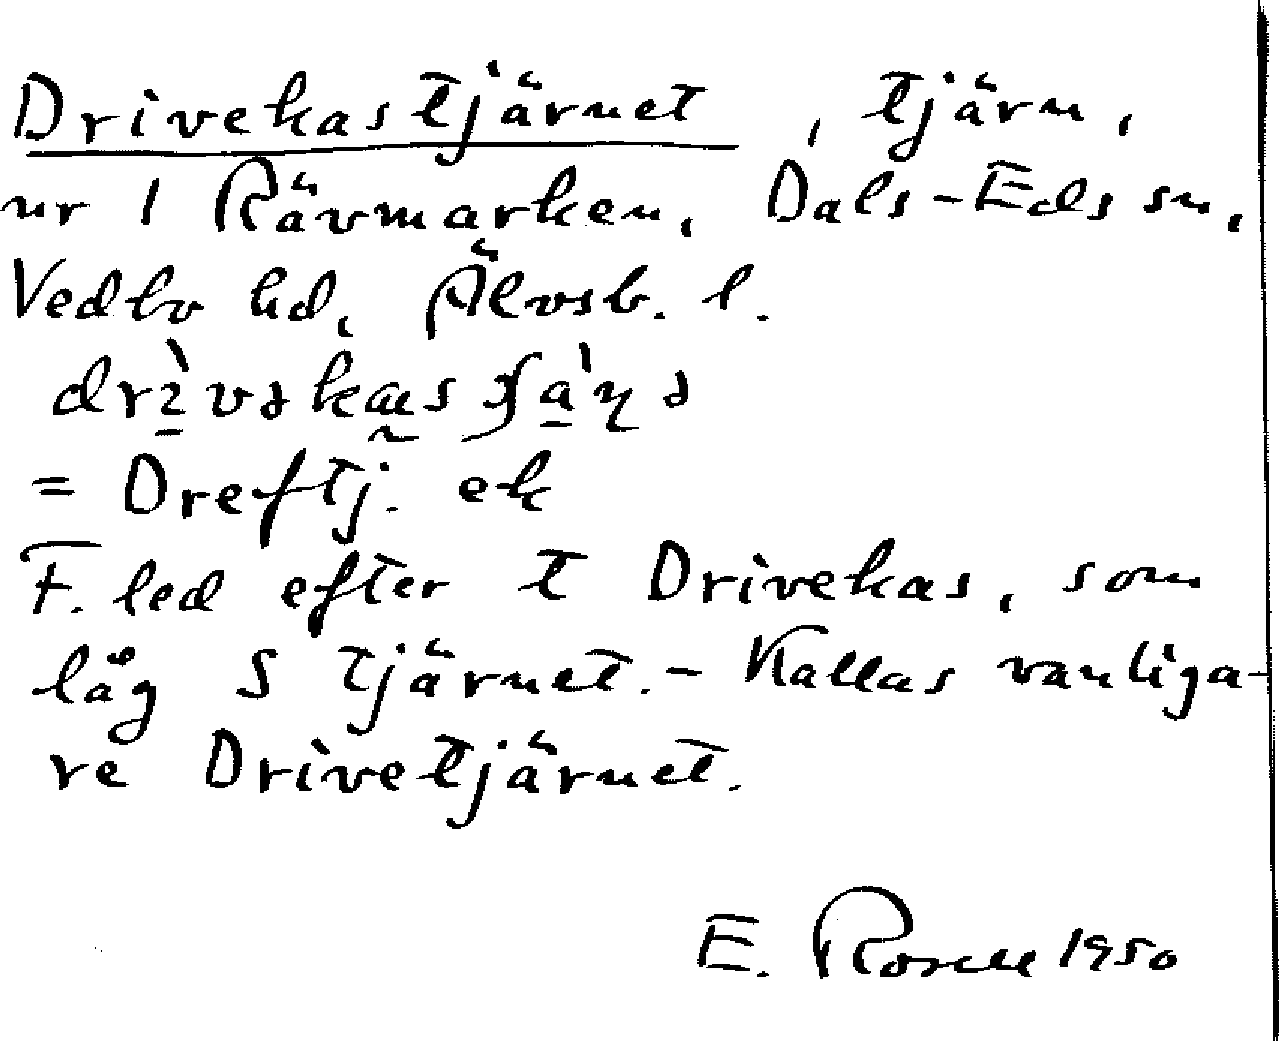 Drivekastjärnet, tjärn,
nr 1 Rävmarken, Dals-Eds sn,
Vedbo hd, Älvsb. l.
= Dreftj. ek
F. led efter t Drivekas, som
låg S tjärnet. - Kallas vanliga-
re Drivetjärnet.
E. Rosell 1950